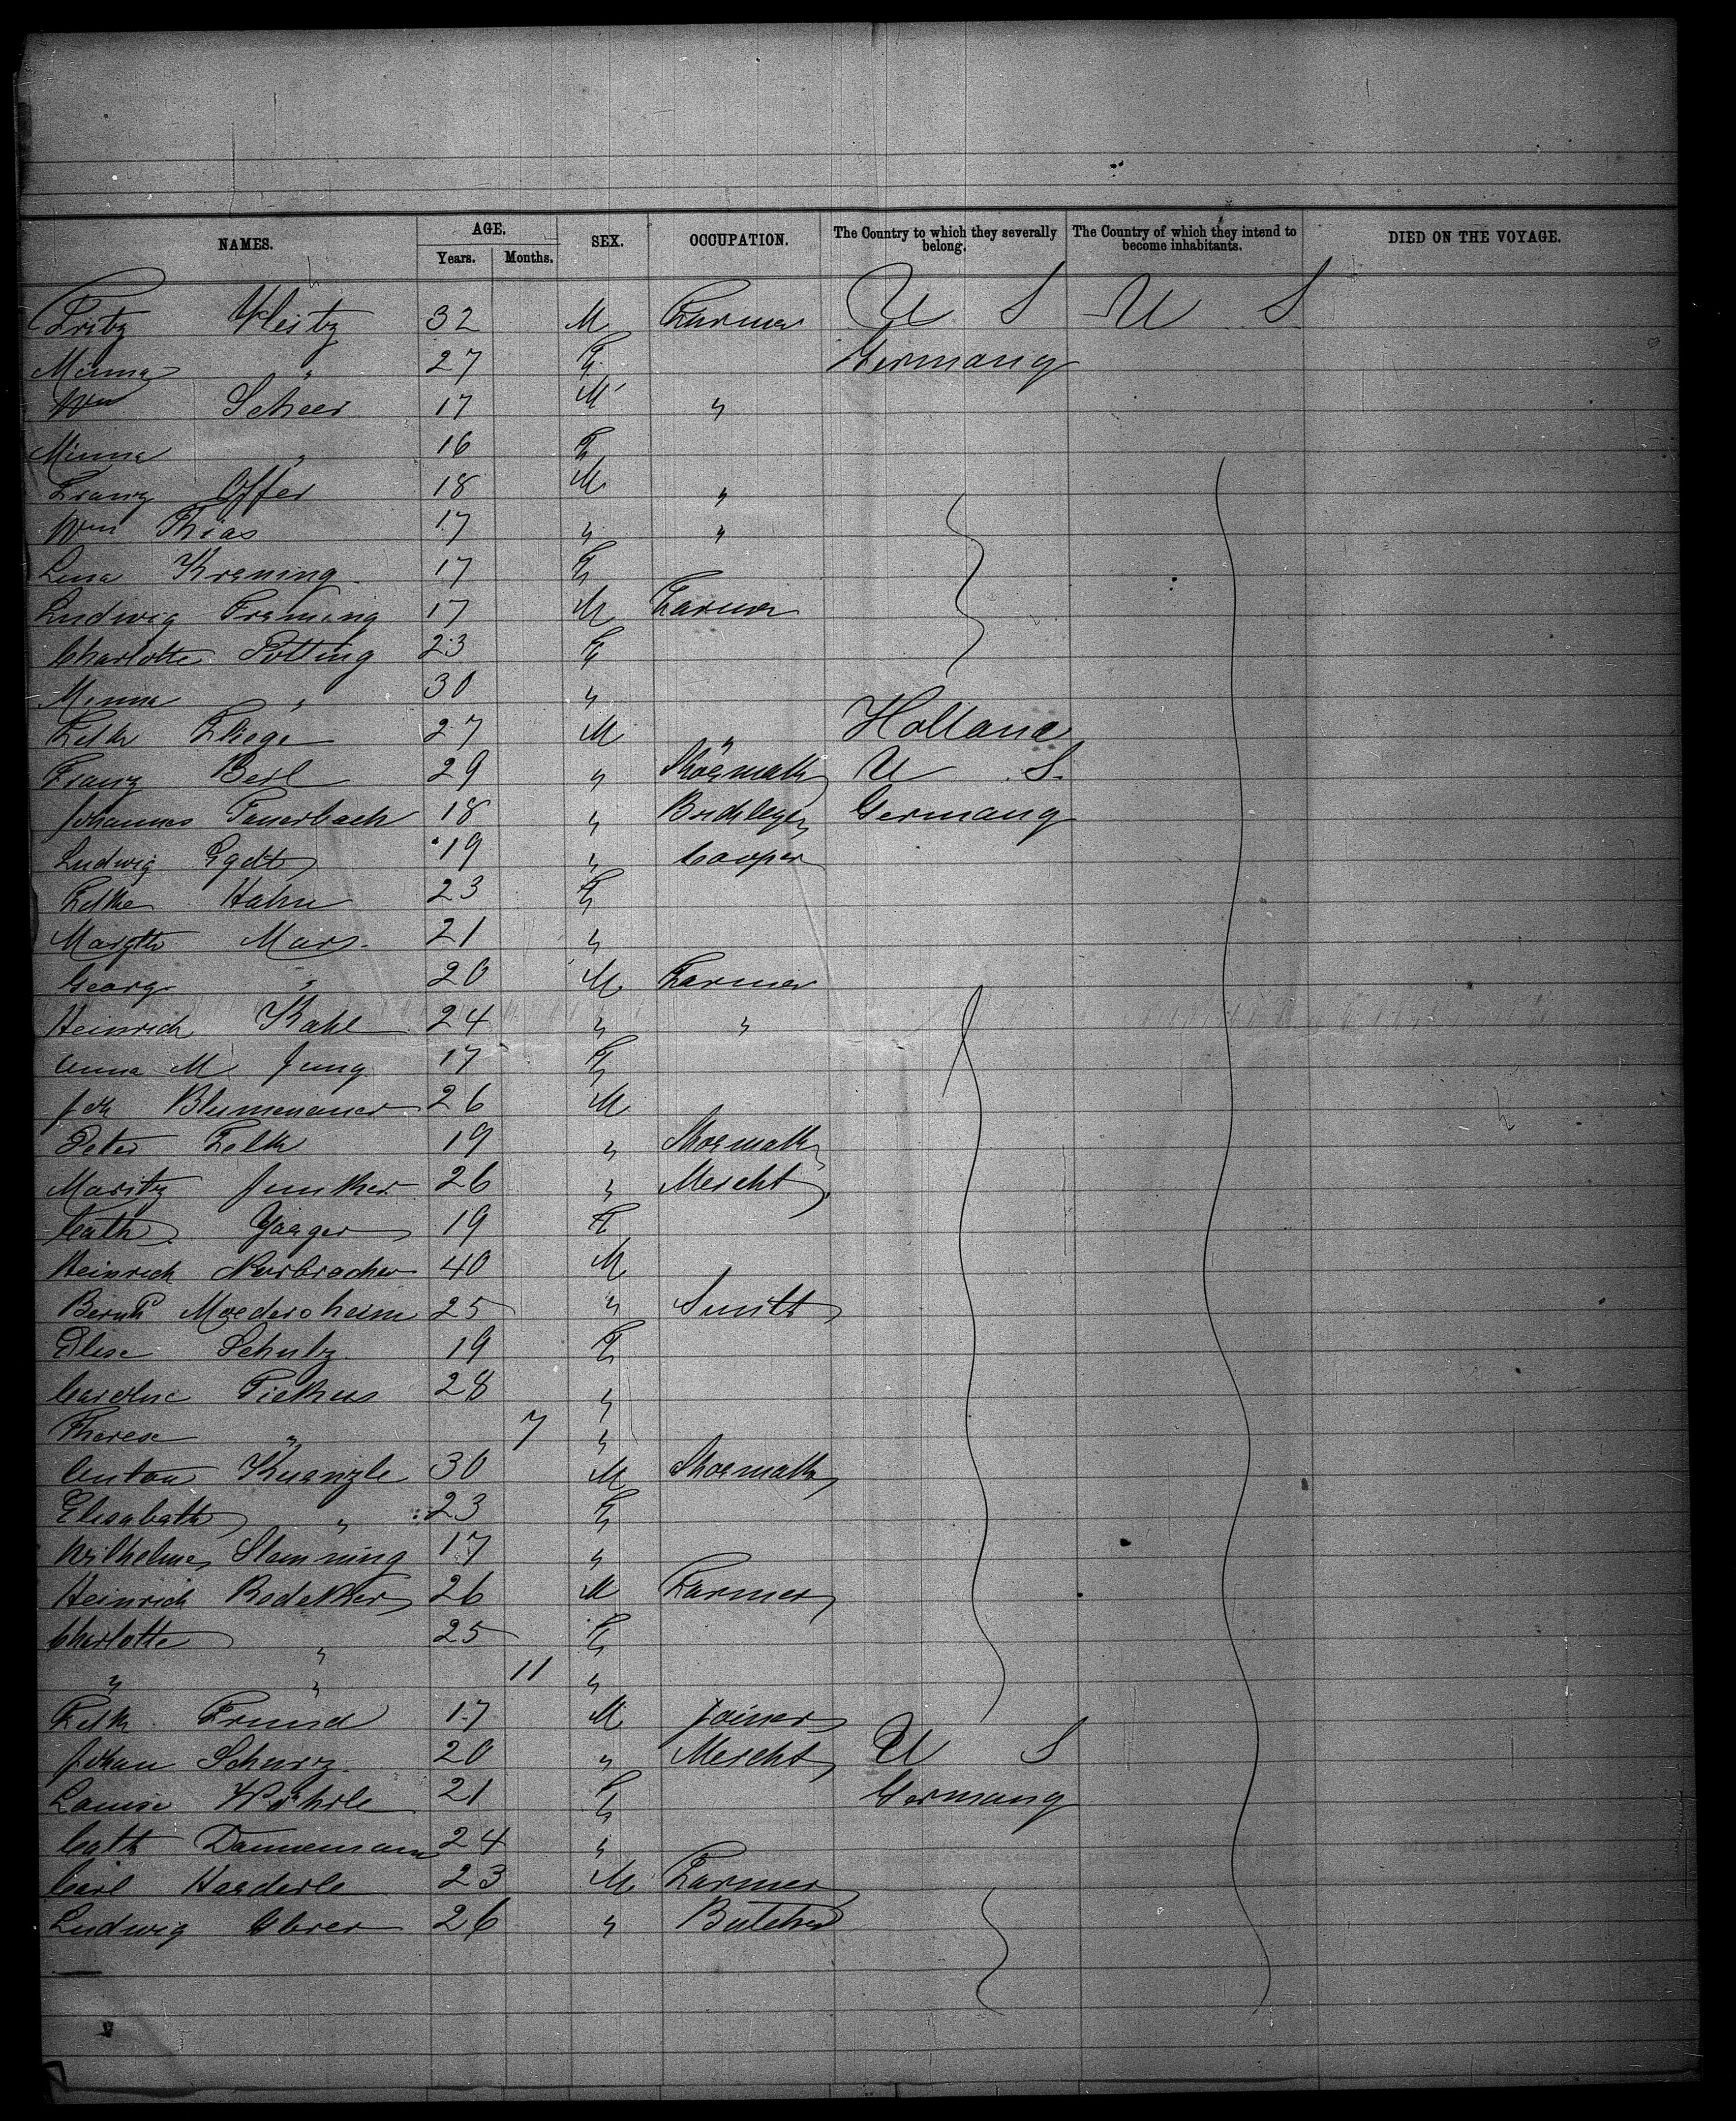 NAMES. AGE. SEX. OCCUPATION. The Country to which they severally belong. The Country of which they intend to become inhabitants. DIED ON THE VOYAGE.
Years. Months.
Fritz 32 M Farmer U S U S
Minna " 27 F Germany
Wm Scheer 17 M "
Minna " 16 F
Franz Offer 18 M "
Wm Thias 17 " "
Lina Kraning 17 F
Ludwig Framing 17 M Farmer
Charlotte Potting 23 F
Minna " 30 "
Fliege 27 M " Holland
Franz Beil 29 " Shoemak U S.
Johannes Fauerbach 18 " Bricklayer Germany
Ludwig Egdt 19 " Cooper
Hahn 23 F
Margth Mars. 21 "
Georg " 20 M Farmer
Heinrich Kahl 24 " "
Anna M Jung 17 F
Joh Blumenauer 26 M
Peter 19 " Shoemak
Moritz Junker 26 " Mercht
Cath Yaeger 19 F
Heinrich 40 M
Bernh Moedersheim 25 " Smith
Elise Schulz 19 F
Caroline 28 "
Therese " 7 "
Anton Kuenzle 30 M Shoemak
Elisabeth " 23 F
Wilhelme 17 "
Heinrich Bodeker 26 M Farmer
Charlotte " 25 F
" " 11 "
17 M Joiner
Johan Schurz. 20 " Mercht U S
Louise Wöhrle 21 F Germany
Cath Dannemann 24 "
Carl Haederle 23 M Farmer
Ludwig 26 " Butcher